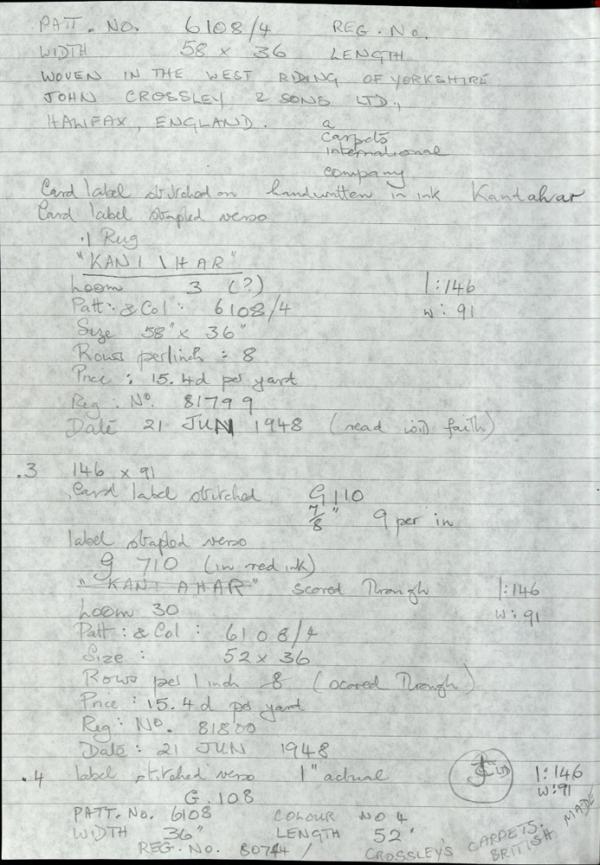 PATT. NO. 6108/4 REG. No.
WIDTH 58 x 36 LENGTH
WOVEN IN THE WEST RIDING OF YORKSHIRE
JOHN CROSSLEY & SONS LTD.,
HALIFAX, ENGLAND. a
carpets
international
company
Card label stitched on handwritten in ink Kandahar
Card label stapled verso
.1 Rug
"KANI \HAR"
Loom 3 (?) l:146
Patt: & Col: 6108/4 w: 91
Size 58" x 36"
Rows per/inch: 8
Price: 15.4d per yard
Reg: No. 81799
Date 21 JUN 1948 (read with faith)
.3 146 x 91
Card label stitched G110
7/8" 9 per in
label stapled verso
g 710 (in red ink)
"KANI AHAR" scored through l:146
Loom 30 w: 91
Patt: & Col: 6108/4
Size: 52 x 36
Rows per 1 inch 8 (scored through)
Price: 15.4d per yard
Reg: No. 81800
Date: 21 JUN 1948
.4 label stitched verso 1" actual l:146
G.108 w:91
PATT. No. 6108 COLOUR NO 4
WIDTH 36" LENGTH 52"
REG. NO. 80744 / CROSSLEYS CARPETS. BRITISH MADE